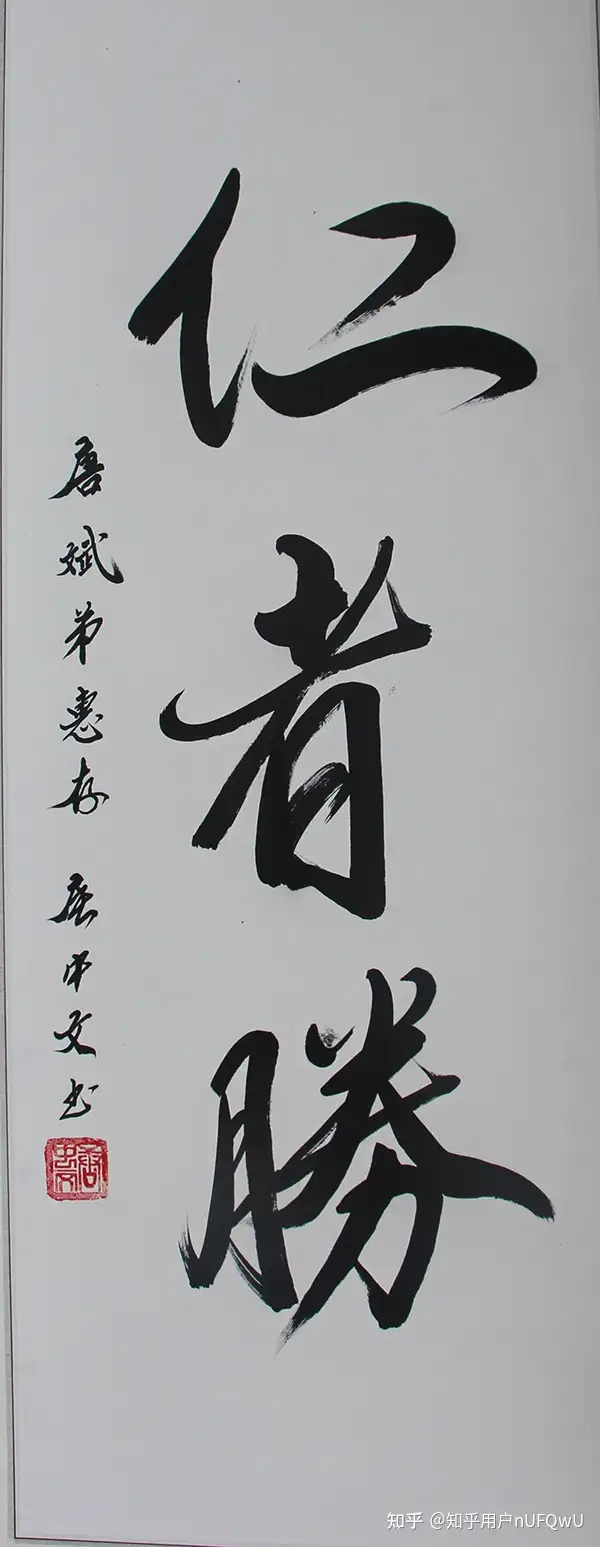 仁者勝
唐斌弟惠存 唐中文书
知乎 @知乎用户nUFQwU